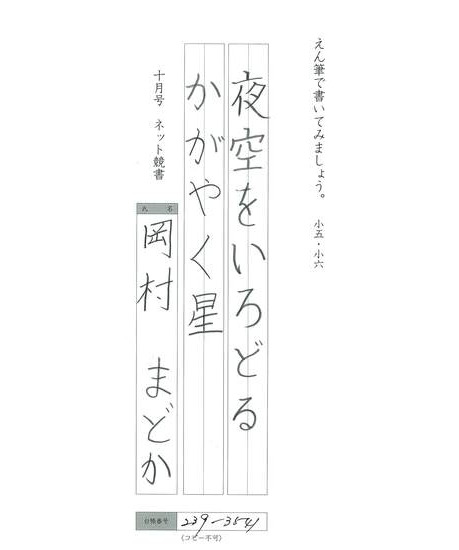 えん筆で書いてみましょう。 小五・小六
夜空をいろどる
かがやく星
十月号 ネット競書
氏名
岡村 まどか
台帳番号 239-3541
(コピー不可)